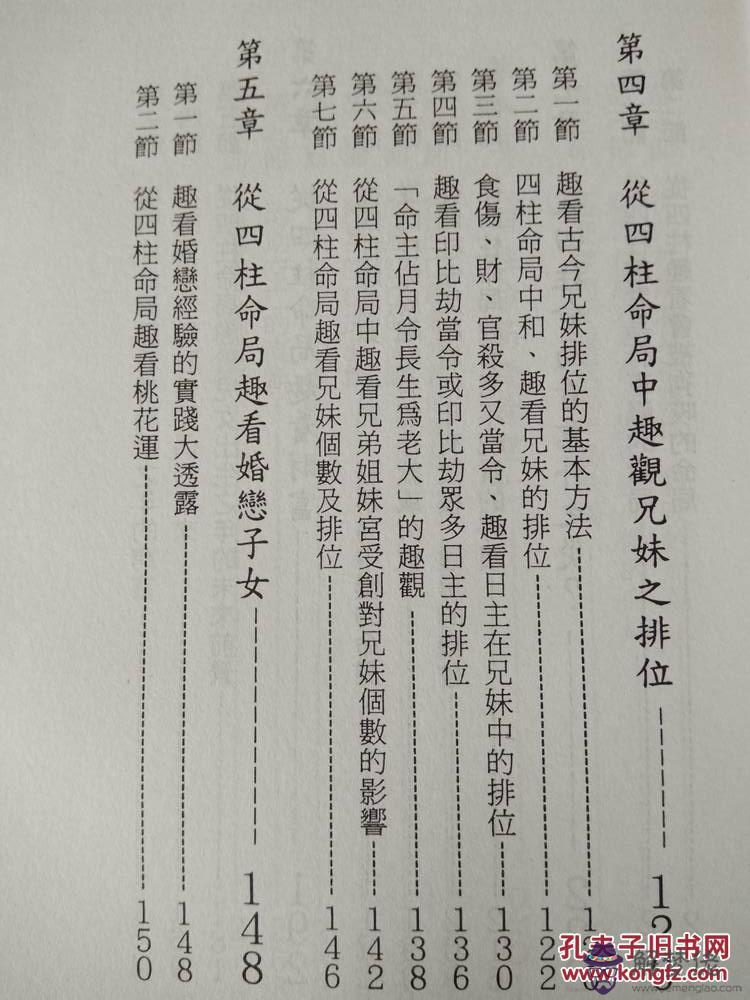 第四章 從四柱命局中趣觀兄妹之排位
第一節 趣看古今兄妹排位的基本方法
第二節 四柱命局中和、趣看兄妹的排位 122
第三節 食傷、財、官殺多又當令、趣看日主在兄妹中的排位 130
第四節 趣看印比劫當令或印比劫眾多日主的排位 136
第五節 「命主佔月令長生爲老大」的趣觀 138
第六節 從四柱命局中趣看兄弟姐妹宮受創對兄妹個數的影響 142
第七節 從四柱命局趣看兄妹個數及排位 146
第五章 從四柱命局趣看婚戀子女 148
第一節 趣看婚戀經驗的實踐大透露 148
第二節 從四柱命局趣看桃花運 150
孔夫子旧书网
www.kongfz.com
jiemenglao.com